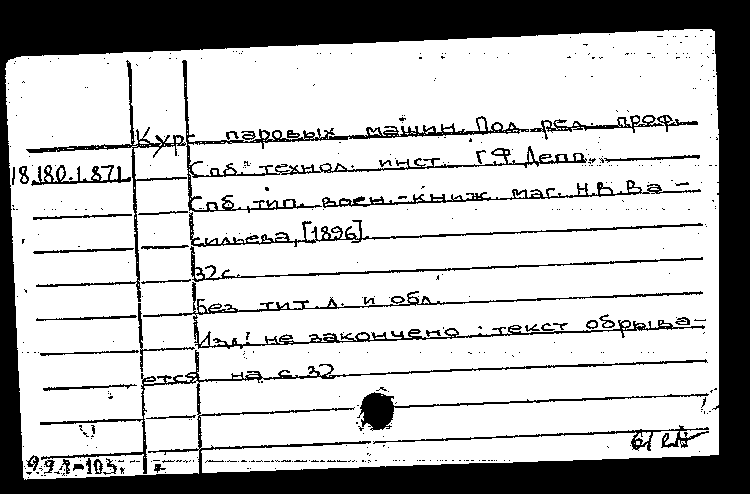 Курс паровых машин. Под ред. проф.
18.180.1.871 Спб. технол. инст. Г.Ф. Депп.
Спб., тип. воен.-книж. маг. Н.В. Ва-
сильева, [1896].
32 с.
Без тит. л. и обл.
Изд. не закончено: текст обрыва-
ется на с. 32.